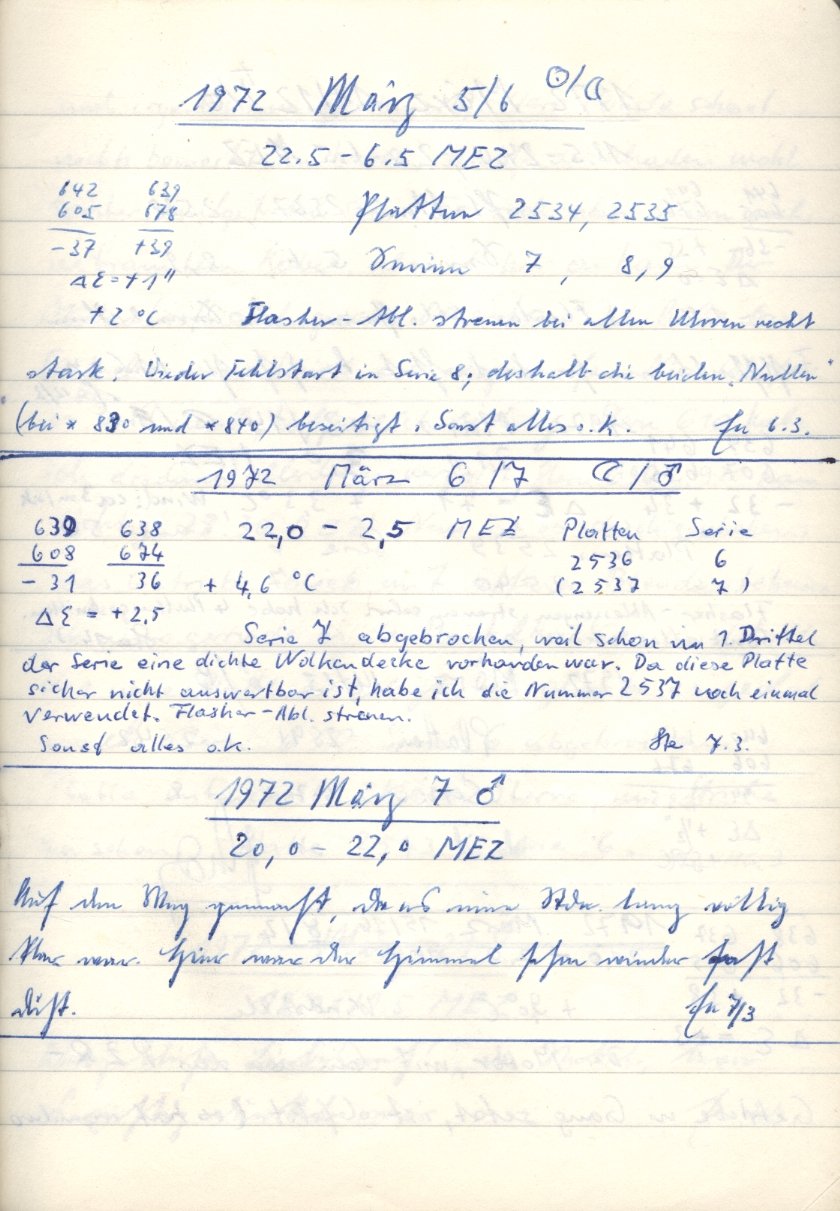 1972 März 5/6 ☉/☾
22.5 – 6.5 MEZ
642 639
605 678
-37 +39
Platten 2534, 2535
Serien 7, 8, 9
Δε = +1"
+2 °C Flasher-Abl. streuen bei allen Uhren recht
stark. Wieder Fehlstart in Serie 8; deshalb die beiden „Nullen"
(bei * 830 und * 840) beseitigt. Sonst alles o.k. 6.3.
1972 März 6/7 ☾/♂
639 638 22,0 – 2,5 MEZ Platten Serie
608 674 2536 6
- 31 36 + 4,6 °C (2537 7)
Δε = + 2,5
Serie 7 abgebrochen, weil schon im 1. Drittel
der Serie eine dichte Wolkendecke vorhanden war. Da diese Platte
sicher nicht auswertbar ist, habe ich die Nummer 2537 noch einmal
verwendet. Flasher-Abl. streuen.
Sonst alles o.k. Ste 7.3.
1972 März 7 ♂
20,0 – 22,0 MEZ
Auf den Weg gemacht, da es eine Stde. lang völlig
klar war. Hier war der Himmel schon wieder fast
dicht. 7/3